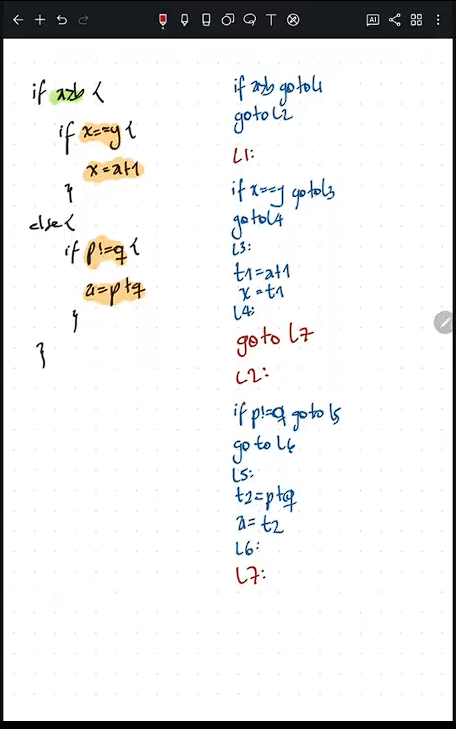 if a>b {
if x==y {
x=a+1
}
else {
if p!=q {
a=p+q
}
}
if a>b goto L1
goto L2
L1:
if x==y goto L3
goto L4
L3:
t1=a+1
x=t1
L4:
goto L7
L2:
if p!=q goto L5
goto L6
L5:
t2=p+q
a=t2
L6:
L7: